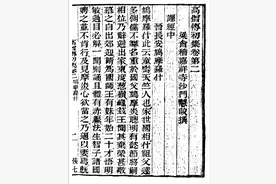 高僧傳初集卷第二
梁會稽嘉祥寺沙門慧皎撰
譯經中
晉長安鳩摩羅什
鳩摩羅什此云童壽天竺人也家世國相什祖父達
多倜儻不羣名重於國父鳩摩炎聰明有懿節將嗣
相位乃辭避出家東度葱嶺龜茲王聞其棄榮甚敬
慕之自出郊迎請為國師王有妹年始二十才悟明
敏過目必解一聞則誦且體有赤黶法生智子諸國
娉之並不肯行及見摩炎心欲當之乃逼以妻焉既